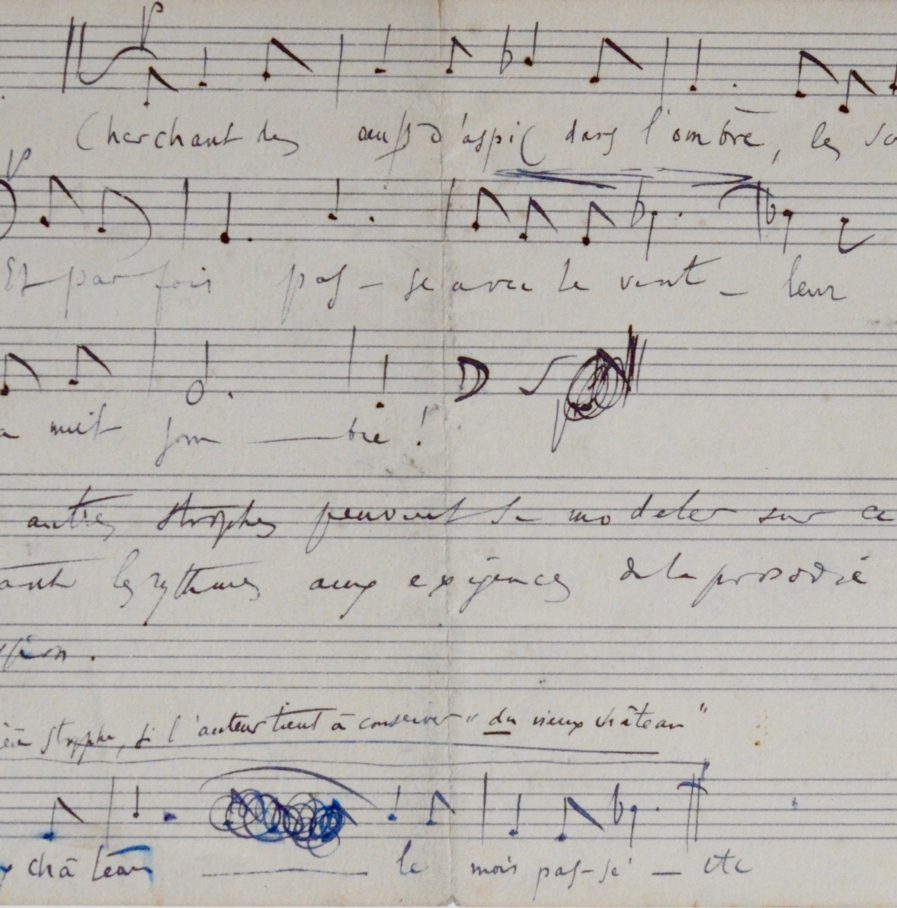 Cherchant des œufs d'aspic dans l'ombre, les
Et par fois pas - se avec le vent - leur
nuit som — bre !
autres strophes peuvent se modeler sur ce
les rythmes aux exigences de la prosodie
strophe, si l'auteur tient à conserver "du vieux château"
château — le mois pas-sé — etc